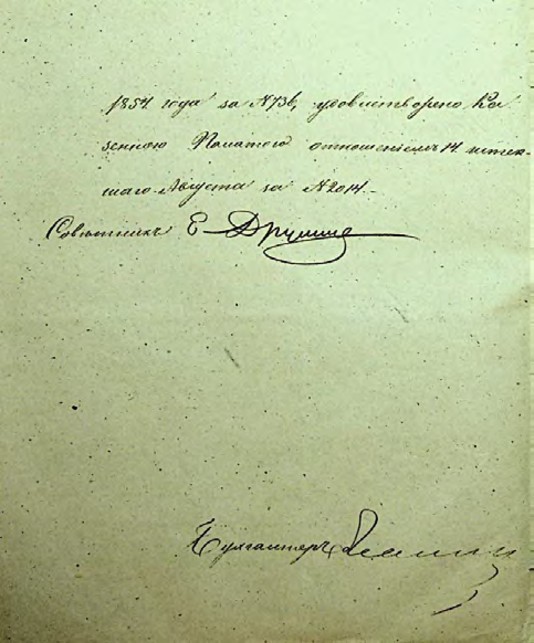 1854 года за №736, удовлетворено Ка
зенною Палатою отношеніемъ 14 истек-
шаго Августа за №2014.
Совѣтникъ Е
Бухгалтеръ